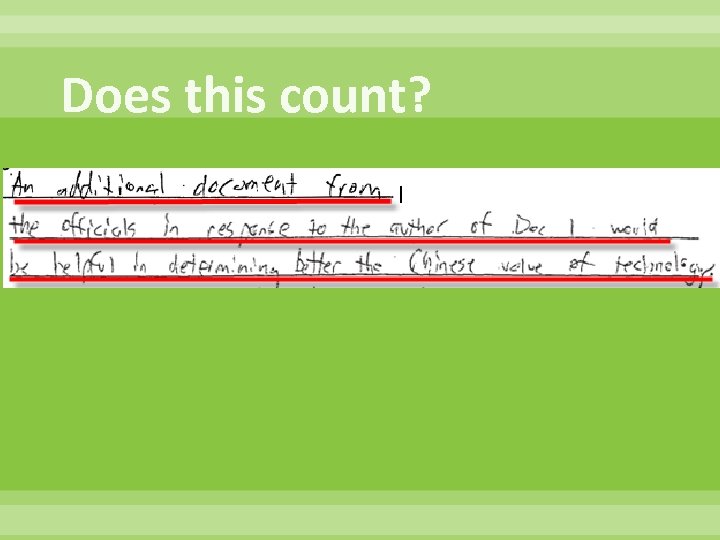 Does this count?
An additional document from
the officials in response to the author of Doc 1 would
be helpful in determining better the Chinese value of technology.